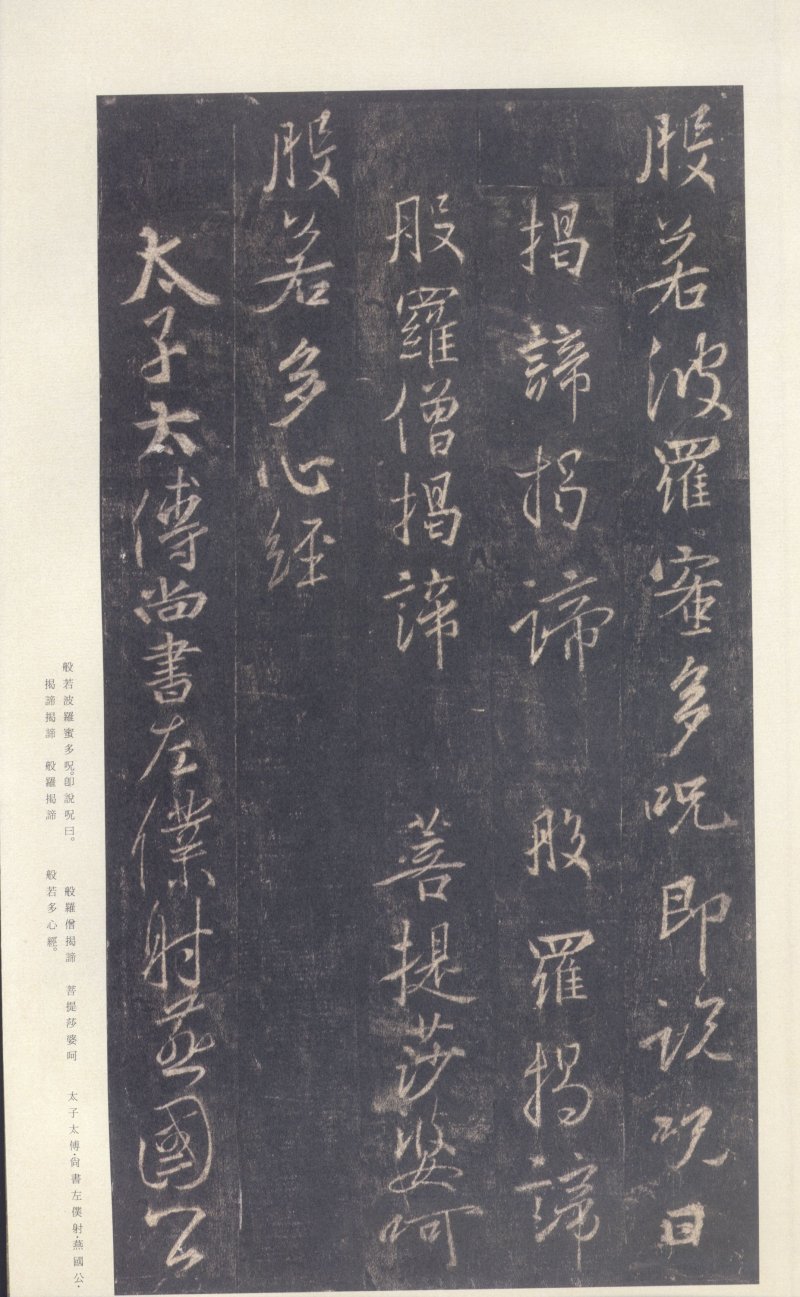 般若波羅蜜多呪即說呪曰
揭諦揭諦 般羅揭諦
般羅僧揭諦 菩提莎婆呵
般若多心經
太子太傅尚書左僕射燕國公
般若波羅蜜多呪。卽說呪曰。
揭諦揭諦 般羅揭諦
般羅僧揭諦 菩提莎婆呵 太子太傅·尙書左僕射·燕國公·
般若多心經。